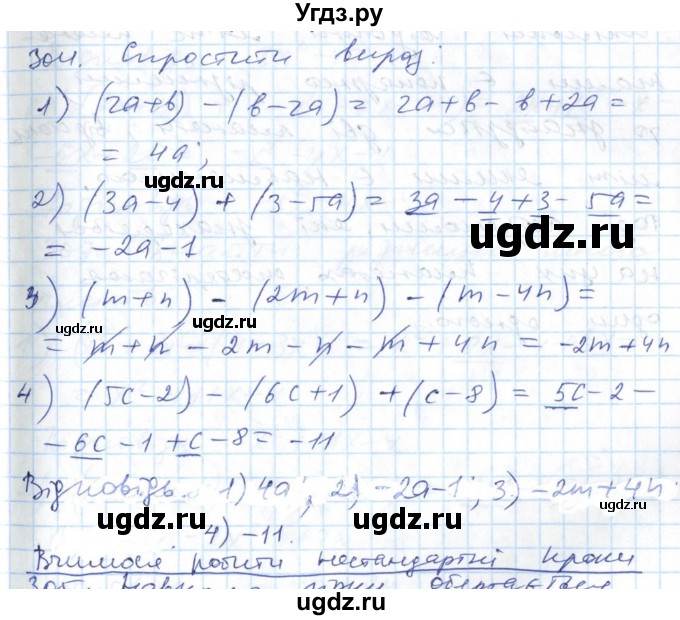 Угдз.ру
304. Спростити вираз:
1) (2a+b) - (b-2a) = 2a+b-b+2a=
= 4a;
ugdz.ru
2) (3a-4) + (3-5a) = 3a-4+3-5a=
ugdz.ru
= -2a-1
ugdz.ru
3) (m+n) - (2m+n) - (m-4n)=
ugdz.ru ugdz.ru
= m+n-2m-n-m+4n = -2m+4n
4) (5c-2) - (6c+1) + (c-8) = 5c-2-
-6c-1+c-8= -11
ugdz.ru ugdz.ru
Відповідь. 1) 4a; 2) -2a-1; 3) -2m+4n
ugdz.ru ugdz.ru
4) -11.
Вчимося робити нестандартні кроки
ugdz.ru
305.
ugdz.ru